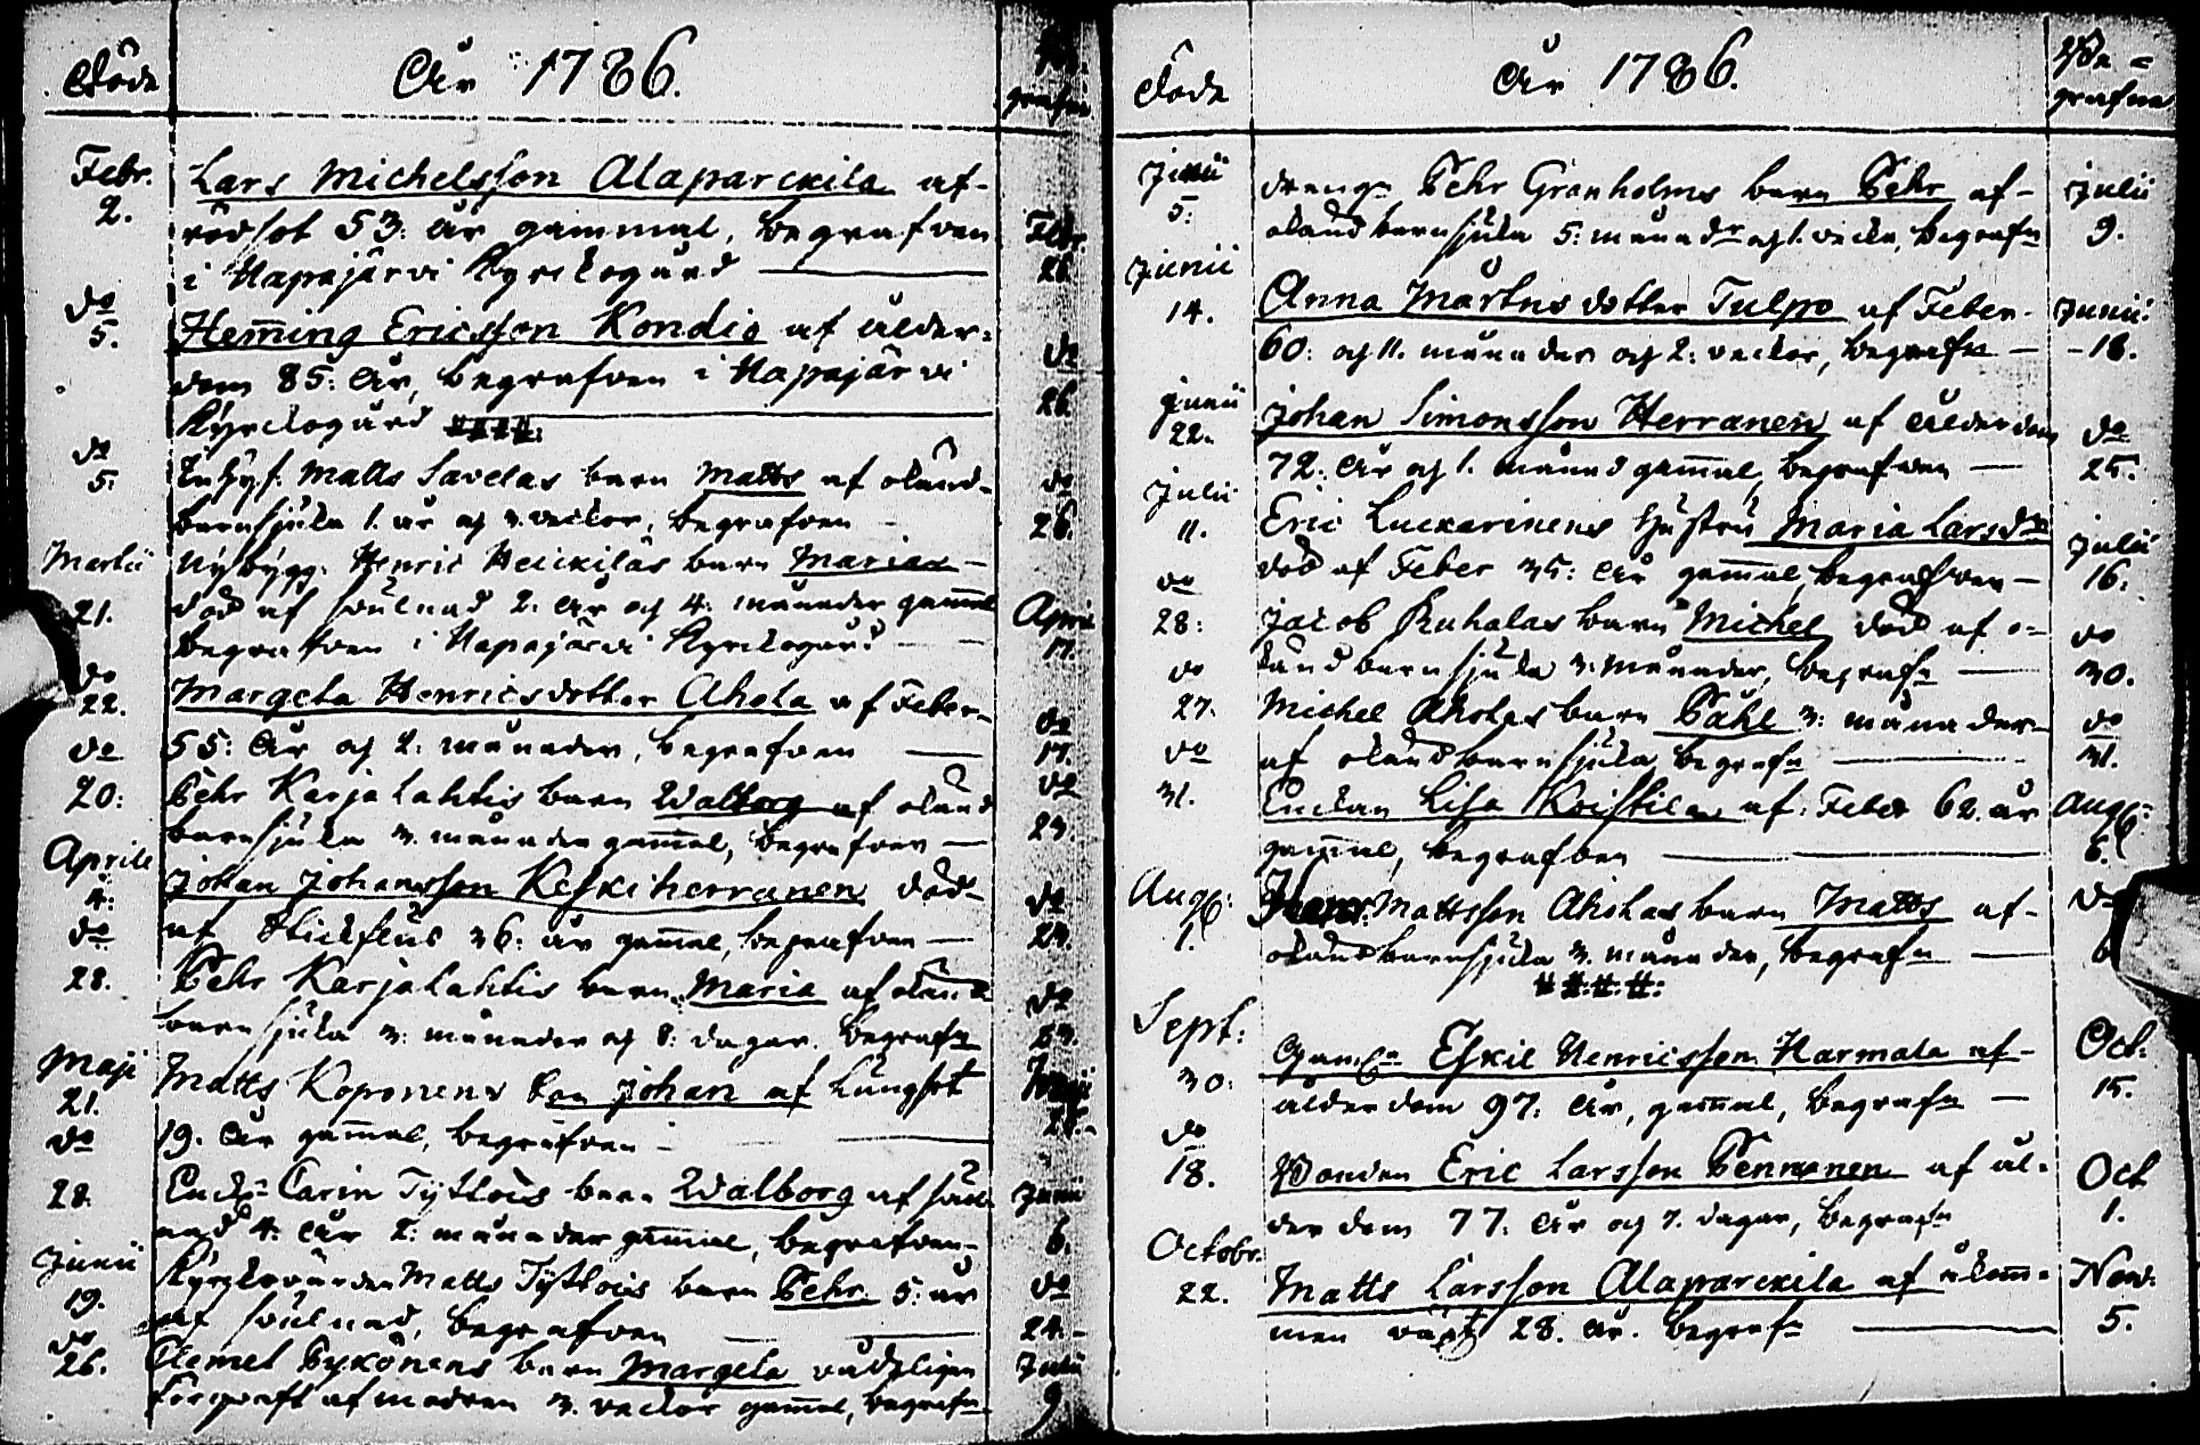 Döde
År 1786.
Be=
grafne
Febr.
2.
Lars Michelsson Alaparckila af
rödsot 53: år gammal, begrafven
i Kapajärvi Kyrckogård
Febr.
26.
do
5.
Hem̄ing Ericsson Kondio af ålder=
dom 85: År, begrafven i Kapajärvi
Kyrckogård ####:
do
26.
do
5.
Matts Savelas barn Matts af okänd
barnsjuka 1. år oc 3. veckor, begrafven
do
26.
Martii
21.
Nybygg. Henric Heickiläs barn Maria
död af svulnad 2. år oc 4. månader gam̄al
begrafven i Kapajärvi Kyrckogård
April
17.
do
22.
Margeta Henricsdotter Ahola af Feber
55: År oc 2. månader, begrafven
do
17.
do
20:
Pehr Karjalahtis barn Walborg af okänd
barnsjuka 3. månader gam̄al, begrafven
do
23.
Aprile
4:
Johan Johansson Keskiherranen död
af Stickfluss 36: år gam̄al, begrafven
do
23.
do
28.
Pehr Karjalahtis barn Maria af okänd
barnsjuka 3: månader oc 8: dagar. begrafn
do
23.
Maji
21.
Matts Koponens son Johan af Lungsot
19. År gam̄al, begrafven
Maji
28.
do
28.
Enck. Carin Tyttöis barn Walborg af svul
nad 4. År 2: månader gam̄al, begrafven
Junii
6.
Junii
19.
Kyrckovärden Matts Tyttöis barn Pehr 5: år
af svulnad, begrafven
do
24.
do
26.
Clemet Pykönens barn Margeta vådeligen
förqvaft af modren 3. veckor gam̄al, begrafn
Julii
9
Döde
År 1786.
Be=
grafne
Junii
5:
drengn Pehr Granholms barn Pehr af
okänd barnsjuka 5: månadr oc 1. vecka, begrafn
Julii
9.
Junii
14.
Anna Mårtensdotter Tulpo af Feber
60: oc 11. månader oc 2: veckor, begrafn
Junii
18.
Junii
22.
Johan Simonsson Herranen af ålderdom
72: År oc 1. månad gam̄al, begrafven
do
25.
Julii
11.
Eric Luckarinens hustru Maria Larsdr
död af Feber 35: År gam̄al, begrafven
Julii
16:
do
28:
Jacob Kuhalas barn Michel död af o=
känd barnsjuka 3. månader, begrafn
do
30.
do
27.
Michel Aholas barn Påhl 3: månader
af okänd barnsjuka begrafn
do
31.
do
31.
Enckan Lisa Kristilä af Feber 62. år
gam̄al, begrafven
Aug:
6.
Aug:
1.
Henr. Mattsson Aholas barn Matts af
okänd barnsjuka 3. månader, begrafn
####:
do
6
Sept:
30:
Gamle Eskil Henricsson Harmala af
ålderdom 97: År, gam̄al, begrafn
Oct:
15.
do
18.
Bonden Eric Larsson Pennanen af ål=
derdom 77. År oc 7. dagar, begrafn
Oct
1.
Octobr.
22.
Matts Larsson Alaparckila af åkom̄=
men växt 28. År. begrafn
Nov:
5.